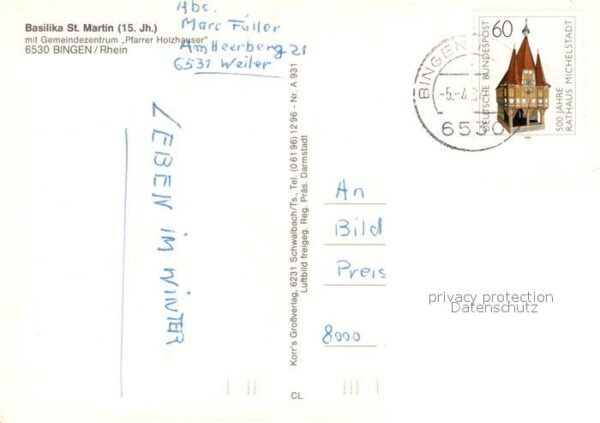 Basilika St. Martin (15. Jh.)
mit Gemeindezentrum „Pfarrer Holzhauser"
6530 BINGEN/Rhein
Abs.
Marc Füller
Am Heerberg 21
6531 Weiler
LEBEN IM WINTER
Korr's Großverlag, 6231 Schwalbach/Ts., Tel. (06196) 1296 - Nr. A 931
Luftbild freigeg. Reg. Präs. Darmstadt
CL
60
DEUTSCHE BUNDESPOST
500 JAHRE
RATHAUS MICHELSTADT
BINGEN
-5.-4.
6530
An
Bild
Preis
8000
privacy protection
Datenschutz